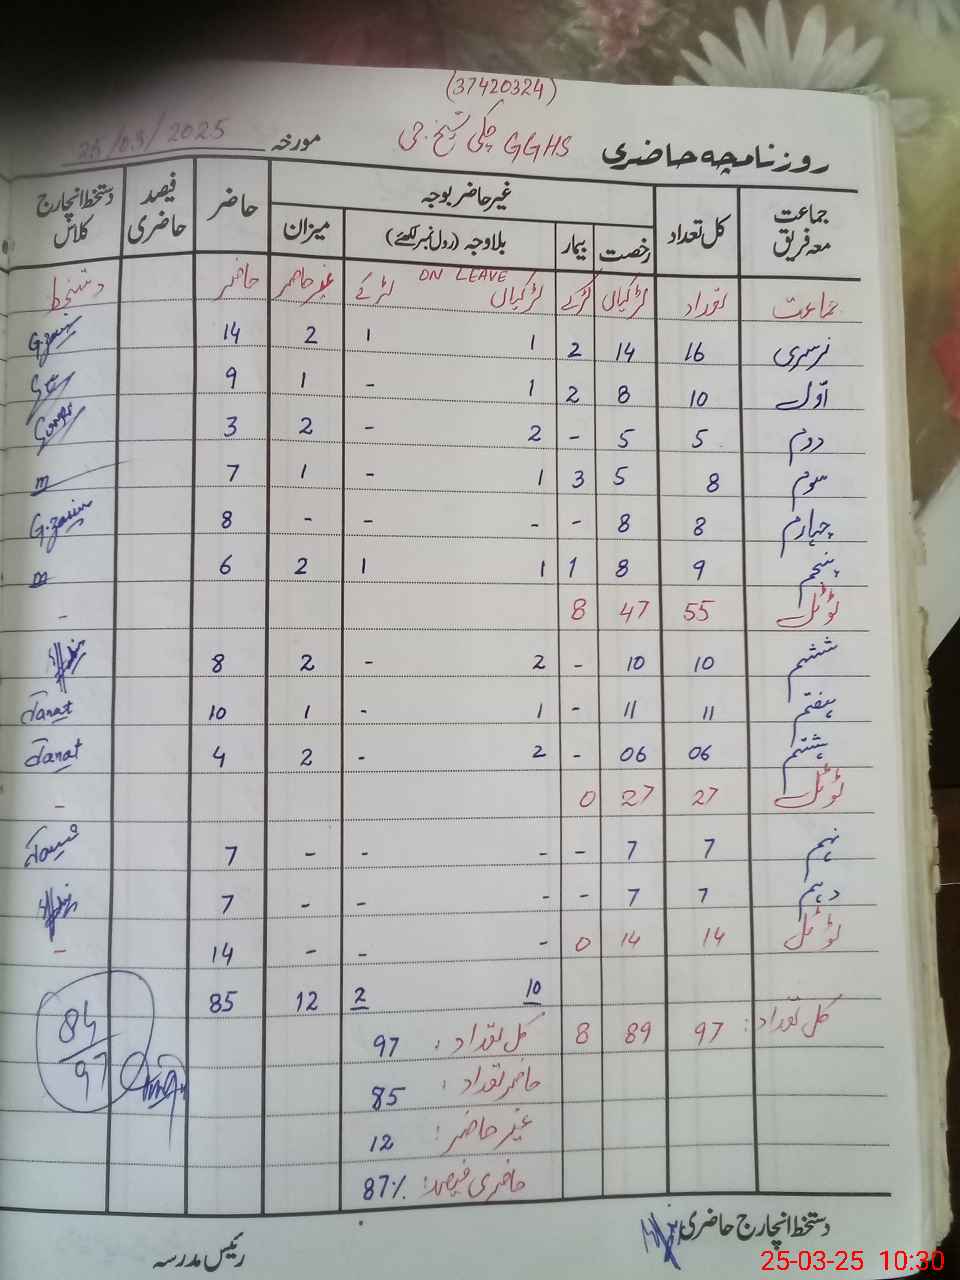 (37420324)
روزنامچہ حاضری GGHS چکی شیخ جی مورخہ 25/03/2025
جماعت معہ فریق کل تعداد غیر حاضر بوجہ حاضر فیصد حاضری دستخط انچارج کلاس
رخصت بیمار بلاوجہ (رول نمبر لکھئے) میزان
ON LEAVE
جماعت تعداد لڑکیاں لڑکے لڑکیاں لڑکے غیر حاضر حاضر دستخط
نرسری 16 14 2 1 1 2 14 G.Zarin
اوّل 10 8 2 1 - 1 9
دوم 5 5 - 2 - 2 3
سوم 8 5 3 1 - 1 7 m
چہارم 8 8 - - - - 8 G.Zarin
پنجم 9 8 1 1 1 2 6 m
ٹوٹل 55 47 8 -
ششم 10 10 - 2 - 2 8
ہفتم 11 11 - 1 - 1 10 Tanat
ہشتم 06 06 - 2 - 2 4 Tanat
ٹوٹل 27 27 0 -
نہم 7 7 - - - - 7
دہم 7 7 - - - - 7
ٹوٹل 14 14 0 - - - 14 -
10 2 12 85
کل تعداد: 97 89 8
کل تعداد: 97
حاضر تعداد: 85
غیر حاضر: 12
حاضری فیصد: 87%
84
97
دستخط انچارج حاضری
رئیس مدرسہ
25-03-25 10:30